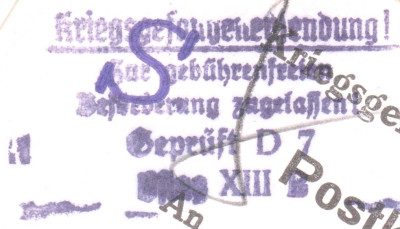 Kriegsgefangenensendung!
S
Zur gebührenfreien
Beförderung zugelassen!
Geprüft D 7
XIII B
Kriegsge
Postk
An